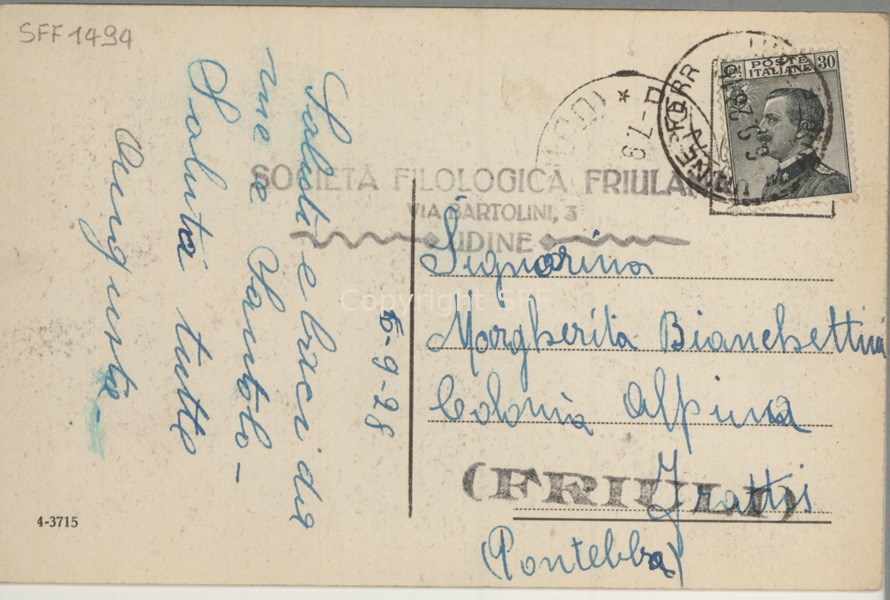 SFF 1494
Saluti e baci da
me e Santolo-
Saluta tutte
Augusta-
6-9-28
SOCIETÀ FILOLOGICA FRIULANA
VIA BARTOLINI, 3
UDINE
POSTE
ITALIANE
30
Signorina
Margherita Bianchettini
Colonia Alpina
Frattis
(FRIULI)
(Pontebba)
4-3715
Copyright SFF